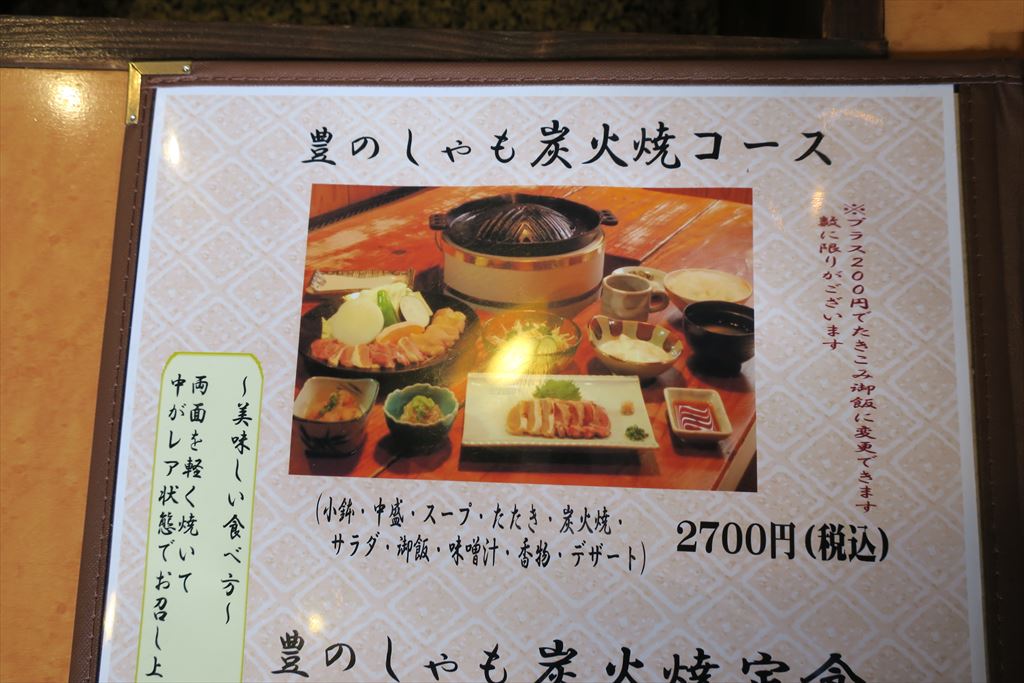 豊のしゃも炭火焼コース
※プラス200円でたきこみ御飯に変更できます
数に限りがございます
(小鉢・中盛・スープ・たたき・炭火焼・
サラダ・御飯・味噌汁・香物・デザート)
2700円(税込)
～美味しい食べ方～
両面を軽く焼いて
中がレア状態でお召し上
豊のしゃも炭火焼定食